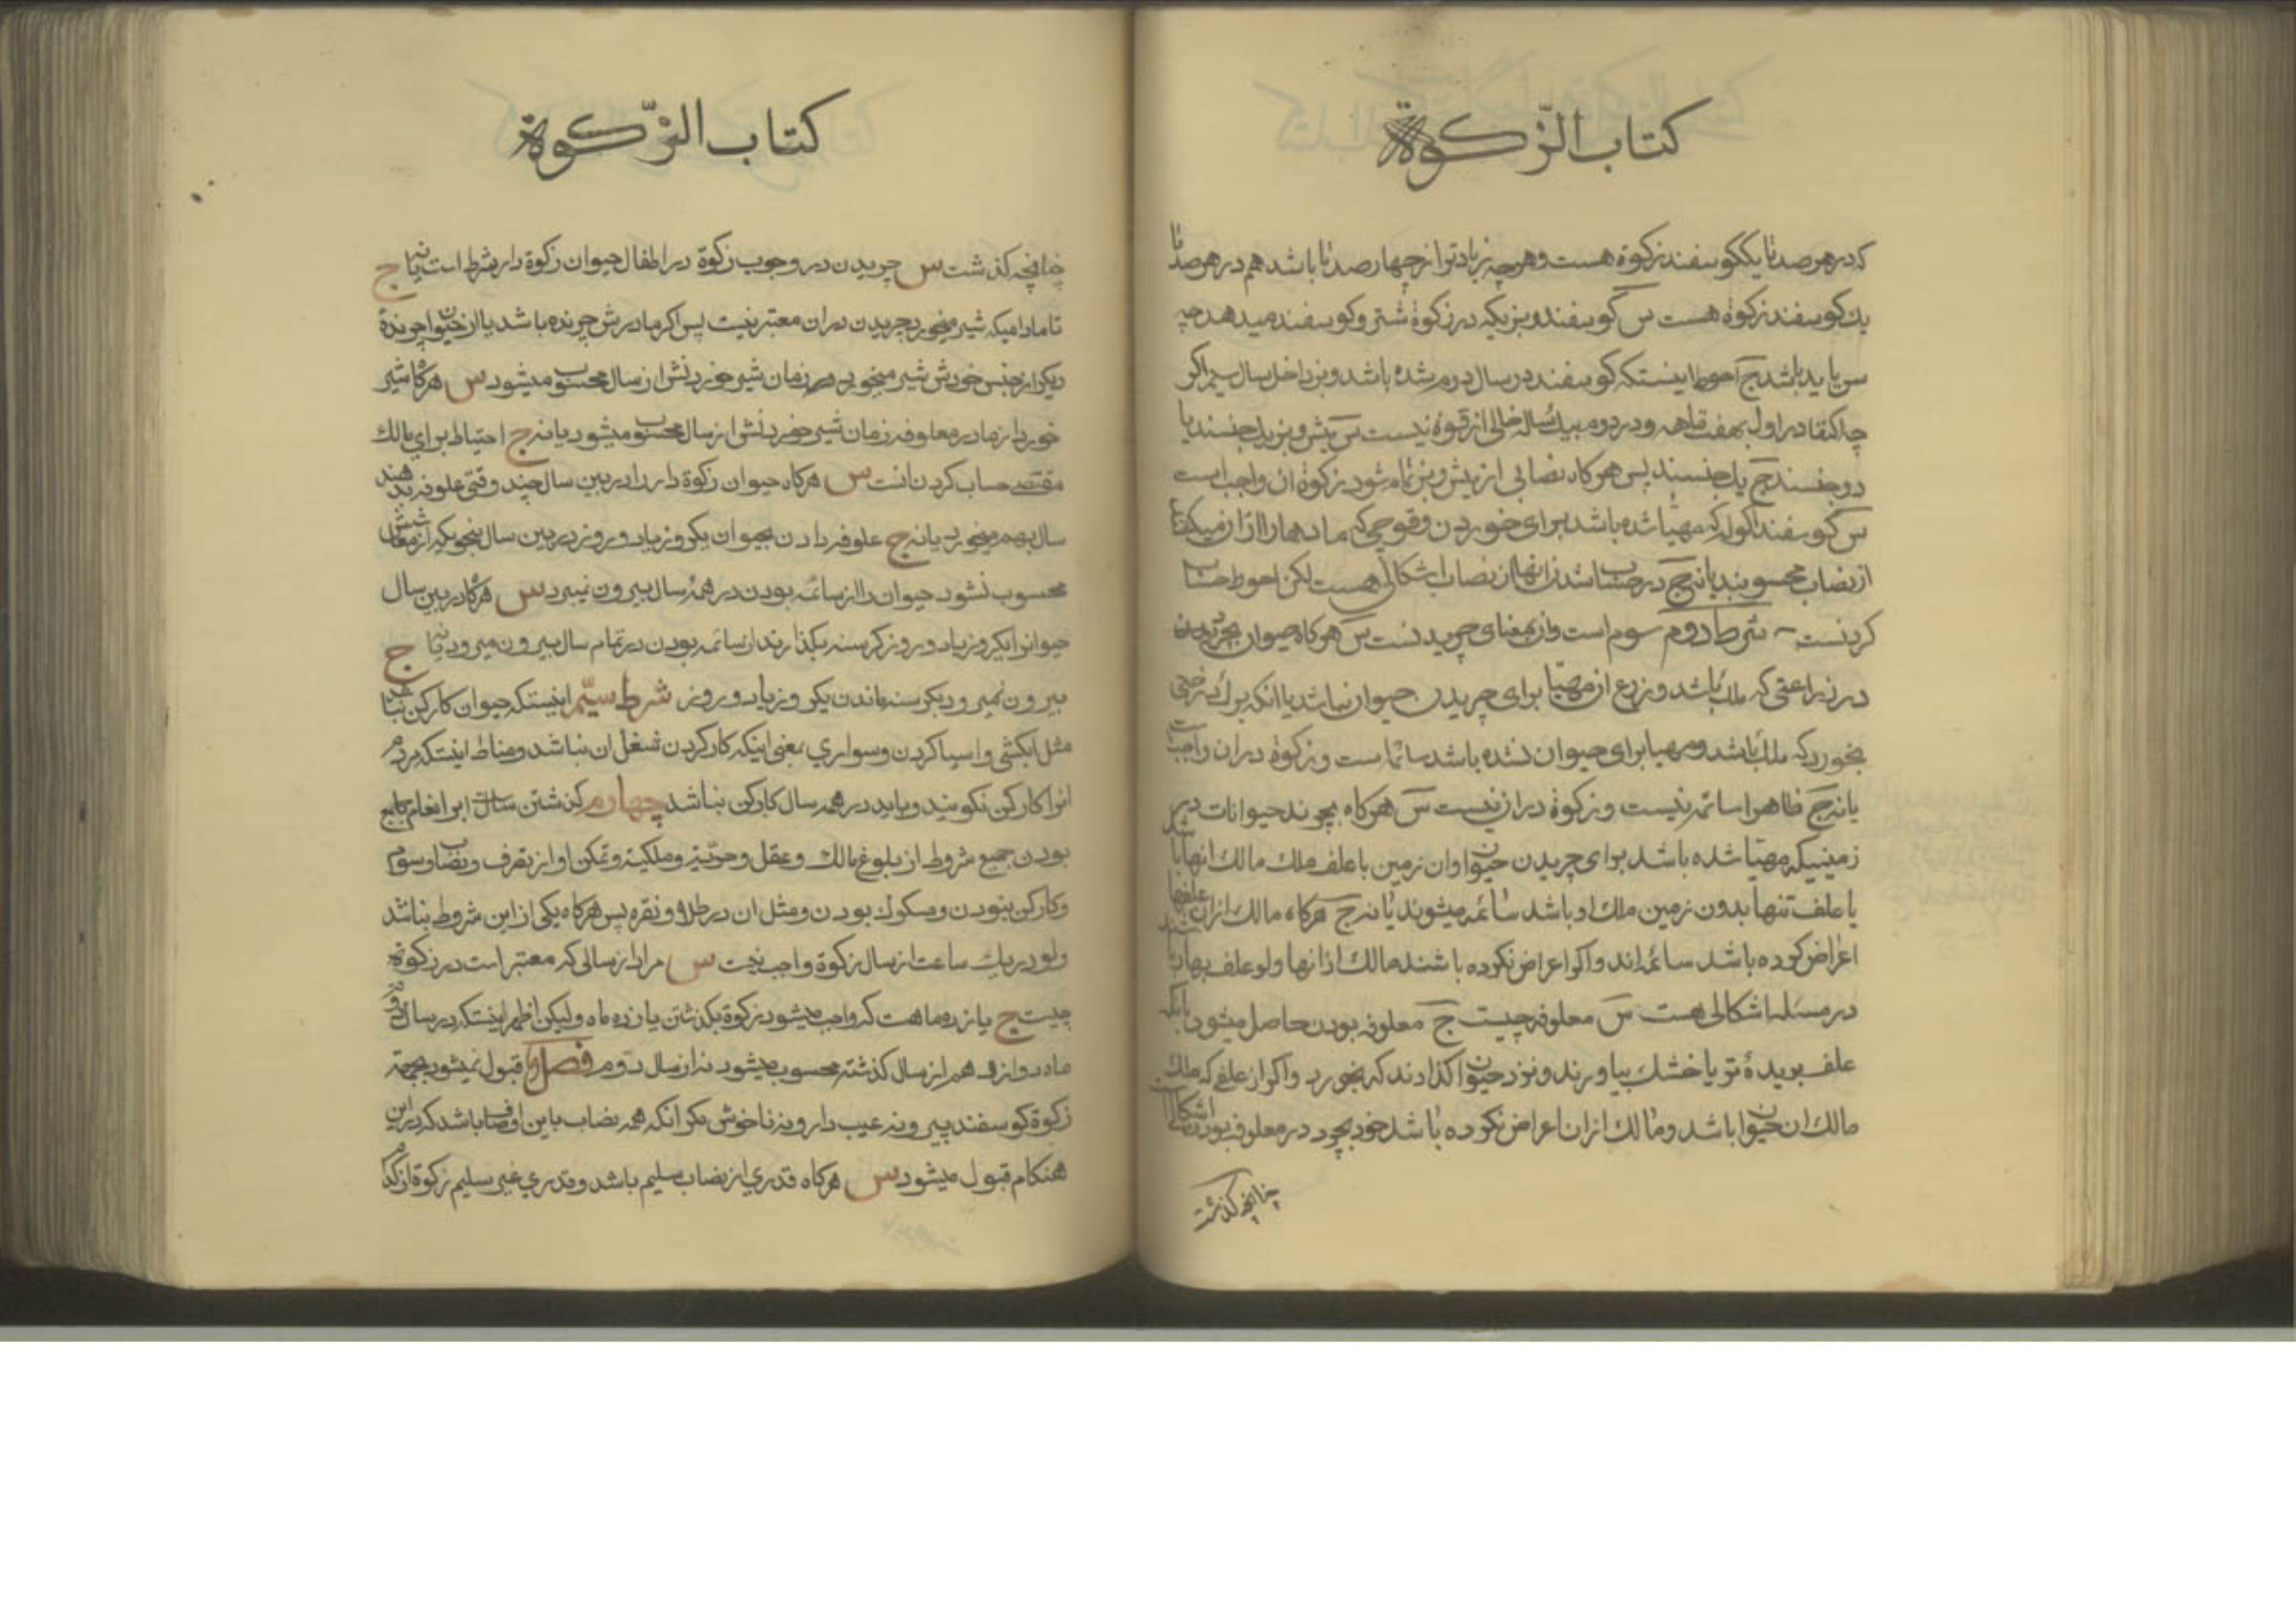 كتاب الزّكوة
كه در هر صد تا يك گوسفند زكوة هست و هرچه زيادتر از چهار صد تا باشد هم در هر صد تا
يك گوسفند زكوة هست س گوسفند و بزيكه در زكوة شتر و گوسفند ميدهد چه
سن بايد باشد ج احوط اينستكه گوسفند در سال دوم شده باشد و بز داخل سال سيم اگر
چه اكتفا در اول بهفت ماهه و در دوم بيك ساله خالى از قوة نيست س ميش و بز يك جنسند يا
دو جنسند ج يك جنسند پس هر گاه نصابى از ميش و بز تمام شود زكوة ان واجب است
س گوسفند اكوله كه مهيا شده باشد براى خوردن و قوچى كه مادهها را از ان ميكشا
از نصاب محسوبند يا نه ج در حساب شدن انها از نصاب اشكالى هست لكن احوط حساب
كردنست شرط دوم سوم است و ان بمعناى چريدنست س هر گاه حيوان بچريدن
در زراعتى كه ملك باشد و زرع ان مهيّا براى چريدن حيوان نباشد يا انكه برك درختى
بخورد كه ملك باشد و مهيا براى حيوان نشده باشد سائمه است و زكوة در ان واجبست
يا نه ج ظاهرا سائمه نيست و زكوة در ان نيست س هر گاه بچرند حيوانات در
زمينيكه مهيّا شده باشد براى چريدن حيوان و ان زمين با علف ملك مالك انها باشد
يا علف تنها بدون زمين ملك او باشد سائمه ميشوند يا نه ج هر گاه مالك از ان علفها
اعراض كرده باشد سائمه اند و اگر اعراض نكرده باشند مالك از انها ولو علف بهار باشد
در مسئله اشكالى هست س معلوفه چيست ج معلوفه بودن حاصل ميشود بانكه
علف بريدهٔ تر يا خشك بياورند و نزد حيوان گذارند كه بخورد و اگر از علفى كه ملك
مالك ان حيوان باشد و مالك از ان اعراض نكرده باشد خود بچرد در معلوفه بودن اشكالست
چنانچه گذشت
كتاب الزّكوة
چنانچه گذشت س چريدن در وجوب زكوة در اطفال حيوان زكوة دار شرط است يا نه ج
تا مادامیكه شير ميخورد چريدن در ان معتبر نيست پس اگر مادرش چرنده باشد يا از حيوان چرندهٔ
ديگر از جنس خودش شير ميخورد زمان شير خوردنش از سال محسوب ميشود س هر گاه شير
خورد از مادر معلوفه زمان شير خوردنش از سال محسوب ميشود يا نه ج احتياط براى مالك
مقتضى حساب كردن انست س هر گاه حيوان زكوة دار را در بين سال چند وقتى علوفه بدهند
سال بهم ميخورد يا نه ج علوفه دادن بحيوان يكروز يا دو روز در بين سال بنحويكه از معاش
محسوب نشود حيوان را از سائمه بودن در همهٔ سال بيرون نميبرد س هر گاه در بين سال
حيوانرا يكروز يا دو روز گرسنه بگذارند از سائمه بودن در تمام سال بيرون ميرود يا نه ج
بيرون نميرود بگرسنه ماندن يكروز يا دو روز شرط سيّم اينستكه حيوان كاركن نباشد
مثل ابكشى و اسيا كردن و سوارى بمعنى اينكه كار كردن شغل ان نباشد و مناط اينستكه مردم
انرا كاركن نگويند و بايد در همه سال كاركن نباشد چهارم گذشتن سالست بر انعام با جامع
بودن جميع شروط از بلوغ مالك و عقل و حرّيّت و ملكيّت و تمكن او از تصرف و نصاب و سوم
و كاركن نبودن و مسكوك بودن و مثل ان در طلا و نقره پس هر گاه يكى از اين شروط نباشد
ولو در يك ساعت از سال زكوة واجب نيست س مراد از سالى كه معتبر است در زكوة
چيست ج يازده ماهست كه واجب ميشود زكوة بگذشتن يازده ماه و ليكن اظهر اينستكه در سال
ماه دوازدهم از سال گذشته محسوب ميشود نه از سال دوم فصل قبول نميشود بجهة
زكوة گوسفند پير و نه عيب دار و نه ناخوش مگر انكه همه نصاب باين اوصاف باشد كه در اين
هنگام قبول ميشود س هر گاه قدرى از نصاب سليم باشد و قدرى غير سليم زكوة از كدام